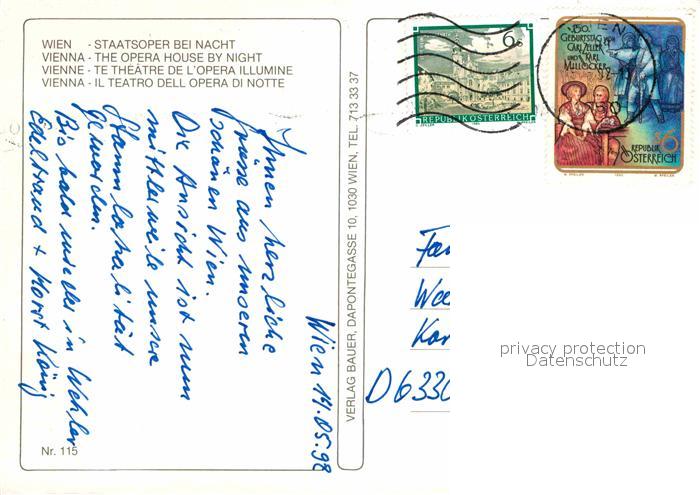 WIEN - STAATSOPER BEI NACHT
VIENNA - THE OPERA HOUSE BY NIGHT
VIENNE - TE THÉÂTRE DE L'OPERA ILLUMINE
VIENNA - IL TEATRO DELL OPERA DI NOTTE
Wien 14.05.98
Ihnen herzliche
Grüsse aus unserem
schönen Wien.
Die Ansicht ist nun
mittlerweile unsere
Stammlokalität
geworden.
Bis bald wieder in
Edeltraud + Horst König
Nr. 115
VERLAG BAUER, DAPONTEGASSE 10, 1030 WIEN, TEL. 713 33 37
6
REPUBLIK ÖSTERREICH
150.
GEBURTSTAG VON
CARL ZELLER
UND KARL
MILLÖCKER
S6
REPUBLIK
ÖSTERREICH
WIEN
D 6330
privacy protection
Datenschutz